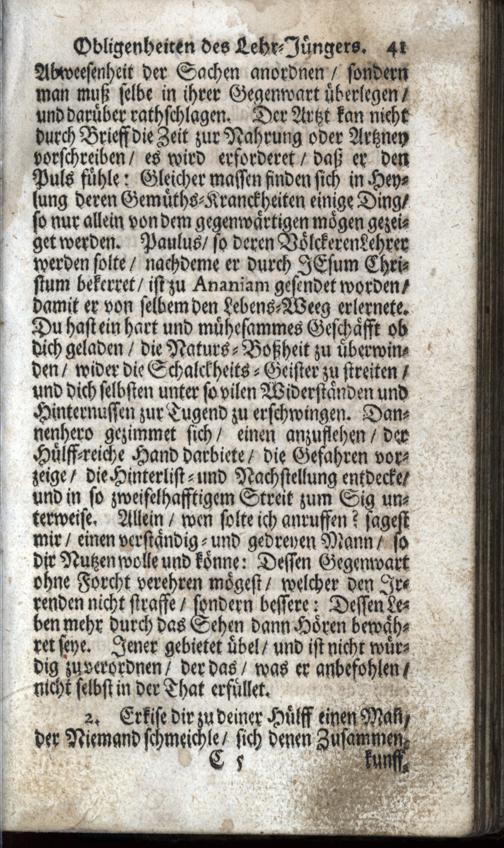 Obligenheiten des Lehr-Jüngers. 41
Abweesenheit der Sachen anordnen / sondern
man muß selbe in ihrer Gegenwart überlegen /
und darüber rathschlagen. Der Artzt kan nicht
durch Brieff die Zeit zur Nahrung oder Artzney
vorschreiben / es wird erforderet / daß er den
Puls fühle: Gleicher massen finden sich in Hey-
lung deren Gemüths-Kranckheiten einige Ding/
so nur allein von dem gegenwärtigen mögen gezei-
get werden. Paulus/ so deren Völckeren Lehrer
werden solte / nachdeme er durch JEsum Chri-
stum bekerret / ist zu Ananiam gesendet worden /
damit er von selbem den Lebens-Weeg erlernete.
Du hast ein hart und mühesammes Geschäfft ob
dich geladen / die Naturs-Boßheit zu überwin-
den / wider die Schalckheits-Geister zu streiten /
und dich selbsten unter so vilen Widerständen und
Hinternussen zur Tugend zu erschwingen. Dan-
nenhero gezimmet sich / einen anzuflehen / der
Hülff-reiche Hand darbiete / die Gefahren vor-
zeige / die Hinterlist- und Nachstellung entdecke/
und in so zweifelhafftigem Streit zum Sig un-
terweise. Allein / wen solte ich anruffen? sagest
mir / einen verständig- und gedreyen Mann / so
dir Nutzen wolle und könne: Dessen Gegenwart
ohne Forcht verehren mögest / welcher den Ir-
renden nicht straffe / sondern bessere: Dessen Le-
ben mehr durch das Sehen dann Hören bewäh-
ret seye. Jener gebietet übel / und ist nicht wür-
dig zu verordnen / der das / was er anbefohlen /
nicht selbst in der That erfüllet.
2. Erkise dir zu deiner Hülff einen Mañ /
der Niemand schmeichle / sich denen Zusammen-
C 5 kunff-